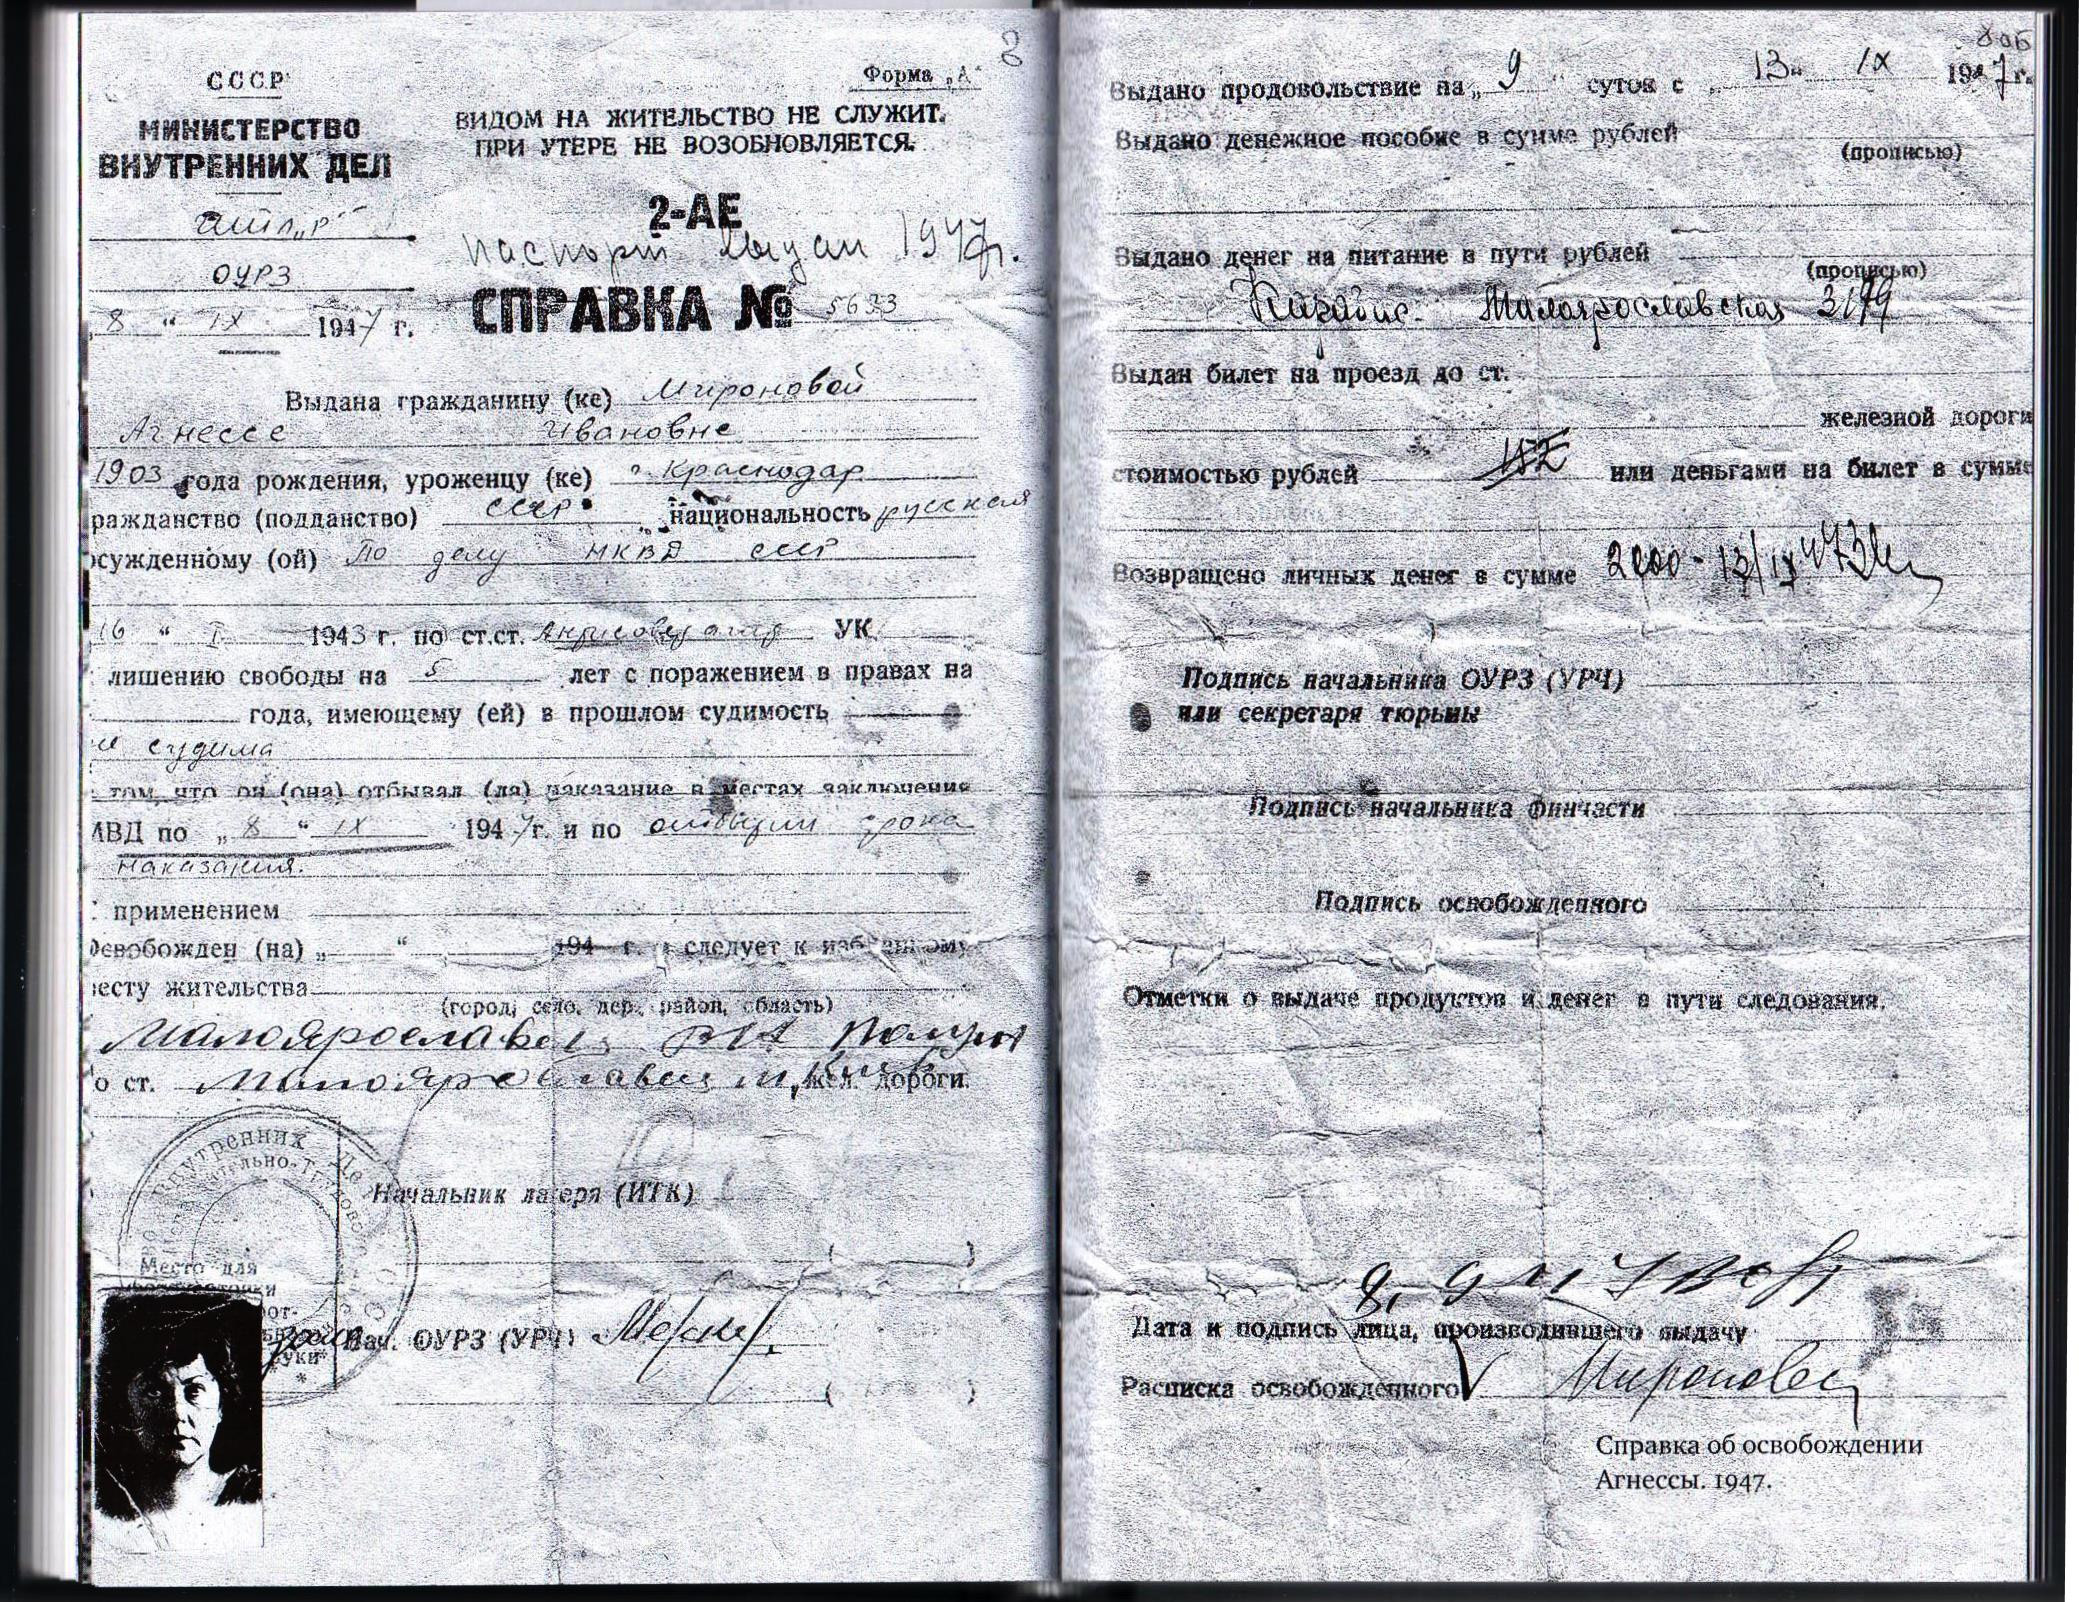 СССР
МИНИСТЕРСТВО
ВНУТРЕННИХ ДЕЛ
ОУРЗ
8 " IX 1947 г.
3
Форма „А"
ВИДОМ НА ЖИТЕЛЬСТВО НЕ СЛУЖИТ.
ПРИ УТЕРЕ НЕ ВОЗОБНОВЛЯЕТСЯ.
2-АЕ
паспорт выдан 1947г.
СПРАВКА № 5633
Выдана гражданину (ке) Мироновой
Агнессе Ивановне
1903 года рождения, уроженцу (ке) г. Краснодар
ражданство (подданство) СССР национальность русская
осужденному (ой) По делу НКВД СССР
16 " 1943 г. по ст.ст. УК
лишению свободы на 5 лет с поражением в правах на
года, имеющему (ей) в прошлом судимость
не судима
том, что он (она) отбывал (ла) наказание в местах заключение
МВД по „ 8 " IX 1947г. и по отбытии срока
наказания.
применением
Освобожден (на) „ " 194 г. и следует к избранному
месту жительства
(город, село, дер., район, область)
Малоярославец
о ст. Малоярославец жел. дороги.
Начальник лагеря (ИТК)
( )
Внутренних Дел
Место для
Нач. ОУРЗ (УРЧ)
( )
8 об
Выдано продовольствие на „ 9 " суток с „ 13 " IX 1947г.
Выдано денежное пособие в сумме рублей
(прописью)
Выдано денег на питание в пути рублей
(прописью)
Малоярославская
Выдан билет на проезд до ст.
железной дороги
стоимостью рублей или деньгами на билет в сумме
Возвращено личных денег в сумме 2000 - 13/IX 47
Подпись начальника ОУРЗ (УРЧ)
или секретаря тюрьмы
Подпись начальника финчасти
Подпись освобожденного
Отметки о выдаче продуктов и денег в пути следования.
Дата и подпись лица, производившего выдачу
Расписка освобожденного Миронова
Справка об освобождении
Агнессы. 1947.